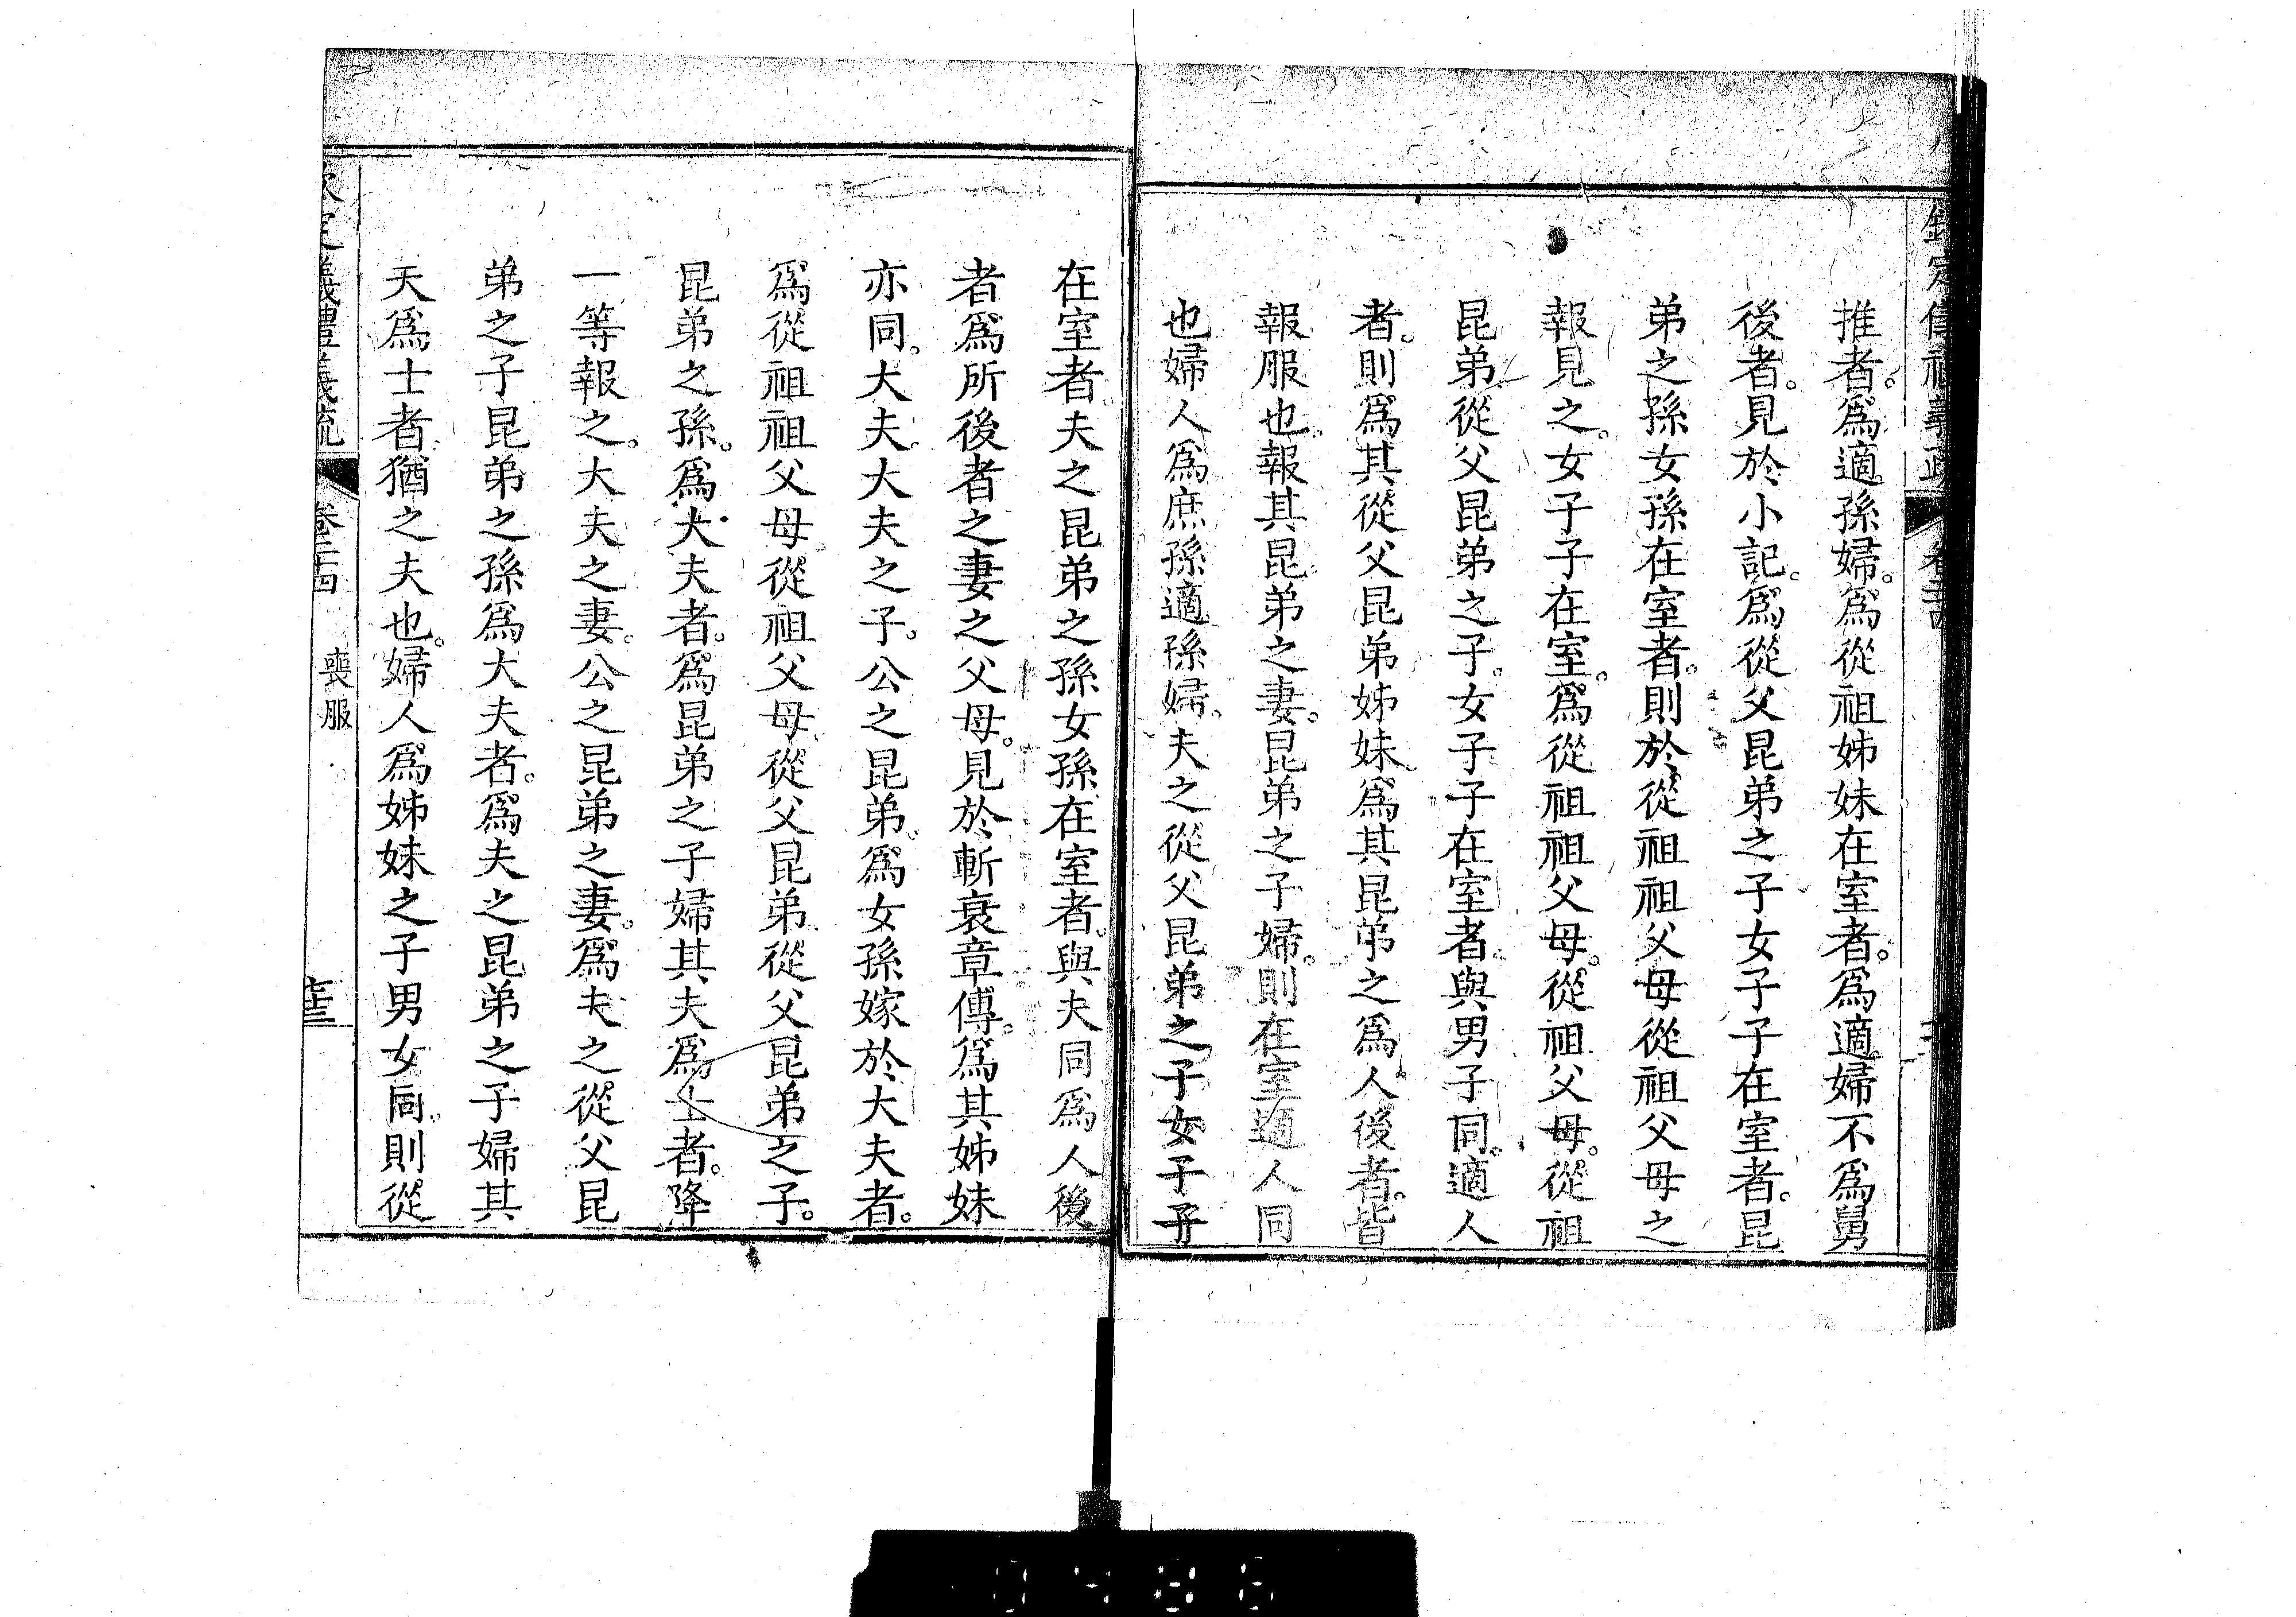 推者。爲適孫婦。爲從祖姊妹在室者。爲適婦不爲舅
後者。見於小記。爲從父昆弟之子女子子在室者。昆
弟之孫女孫在室者。則於從祖祖父母從祖父母之
報見之。女子子在室。爲從祖祖父母。從祖父母。從祖
昆弟。從父昆弟之子。女子子在室者。與男子同。適人
者。則爲其從父昆弟姊妹。爲其昆弟之爲人後者。皆
報服也。報其昆弟之妻。昆弟之子婦。則在室適人同
也婦人爲庶孫適孫婦。夫之從父昆弟之子女子子
在室者。夫之昆弟之孫女孫在室者。與夫同爲人後
者爲所後者之妻之父母。見於斬衰章傳。爲其姊妹
亦同。大夫。大夫之子。公之昆弟。爲女孫嫁於大夫者。
爲從祖祖父母從祖父母從父昆弟從父昆弟之子。
昆弟之孫。爲大夫者。爲昆弟之子婦其夫爲士者。降
一等報之。大夫之妻。公之昆弟之妻。爲夫之從父昆
弟之子昆弟之孫爲大夫者。爲夫之昆弟之子婦其
天爲士者。猶之夫也。婦人爲姊妹之子男女同。則從
欽定儀禮義疏 卷二十四 喪服